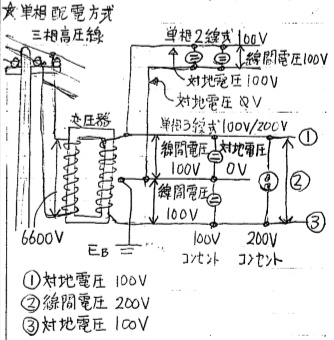 ☆単相配電方式
三相高圧線
単相2線式100V
線間電圧100V
対地電圧100V
対地電圧0V
変圧器
単相3線式100V/200V
①
線間電圧
100V
対地電圧
0V
②
線間電圧
100V
③
6600V
EB
100V
コンセント
200V
コンセント
①対地電圧 100V
②線間電圧 200V
③対地電圧 100V